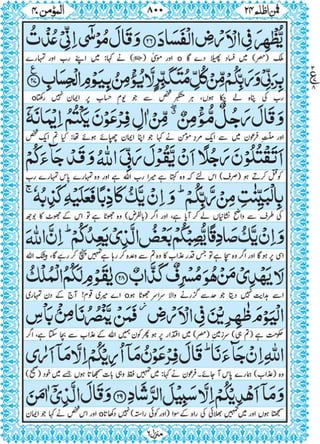 فمن اظلم ۲۴ ۸۰۰ المؤمن ۴۰
يُّظْهِرَ فِي الْاَرْضِ الْفَسَادَ ﴿۲۶﴾ وَقَالَ مُوْسٰٓى اِنِّيْ عُذْتُ
ملک (مصر) میں فساد پھیلا دے گا o اور موسٰی نے کہا: میں اپنے رب اور تمہارے
بِرَبِّيْ وَرَبِّكُمْ مِّنْ كُلِّ مُتَكَبِّرٍ لَّا يُؤْمِنُ بِيَوْمِ الْحِسَابِ ﴿۲۷﴾
رب کی پناہ لے چکا ہوں، ہر متکبر شخص سے جو یوم حساب پر ایمان نہیں رکھتا o
وَقَالَ رَجُلٌ مُّؤْمِنٌ مِّنْ اٰلِ فِرْعَوْنَ يَكْتُمُ اِيْمَانَهٗٓ
اور فرعون میں سے ایک مرد مومن نے کہا جو اپنا ایمان چھپائے ہوئے تھا: کیا تم ایک شخص
اَتَقْتُلُوْنَ رَجُلًا اَنْ يَّقُوْلَ رَبِّيَ اللّٰهُ وَقَدْ جَآءَكُمْ
کو قتل کرتے ہو (صرف) اس لئے کہ وہ کہتا ہے میرا رب اللہ ہے اور وہ تمہارے پاس تمہارے رب
بِالْبَيِّنٰتِ مِنْ رَّبِّكُمْ ؕ وَاِنْ يَّكُ كَاذِبًا فَعَلَيْهِ كَذِبُهٗ ۚ
کی طرف سے واضح نشانیاں لے کر آیا ہے، اور اگر (بالفرض) وہ جھوٹا ہے تو اس کے جھوٹ کا بوجھ
وَاِنْ يَّكُ صَادِقًا يُّصِبْكُمْ بَعْضُ الَّذِيْ يَعِدُكُمْ ؕ اِنَّ اللّٰهَ
اسی پر ہو گا اور اگر وہ سچا ہے تو جس قدر عذاب کا وہ تم سے وعدہ کر رہا ہے تمہیں پہنچ کر رہے گا، بیشک اللہ
لَا يَهْدِيْ مَنْ هُوَ مُسْرِفٌ كَذَّابٌ ﴿۲۸﴾ يٰقَوْمِ لَكُمُ الْمُلْكُ
اسے ہدایت نہیں دیتا جو حد سے گزرنے والا سراسر جھوٹا ہو o اے میری قوم! آج کے دن تمہاری
الْيَوْمَ ظٰهِرِيْنَ فِي الْاَرْضِ ؗ فَمَنْ يَّنْصُرُنَا مِنْ بَاْسِ
حکومت ہے سرزمین (مصر) میں اقتدار پر ہو پھر کون ہمیں اللہ کے عذاب سے بچا سکتا ہے، اگر
اللّٰهِ اِنْ جَآءَنَا ؕ قَالَ فِرْعَوْنُ مَآ اُرِيْكُمْ اِلَّا مَآ اَرٰى
وہ (عذاب) ہمارے پاس آ جائے۔ فرعون نے کہا: میں تمہیں فقط وہی بات سمجھاتا ہوں جسے میں خود (صحیح)
وَمَآ اَهْدِيْكُمْ اِلَّا سَبِيْلَ الرَّشَادِ ﴿۲۹﴾ وَقَالَ الَّذِيْٓ اٰمَنَ
سمجھتا ہوں اور میں تمہیں بھلائی کی راہ کے سوا (اور کوئی راستہ) نہیں دکھاتا o اور اس شخص نے کہا جو ایمان
منزل ۶